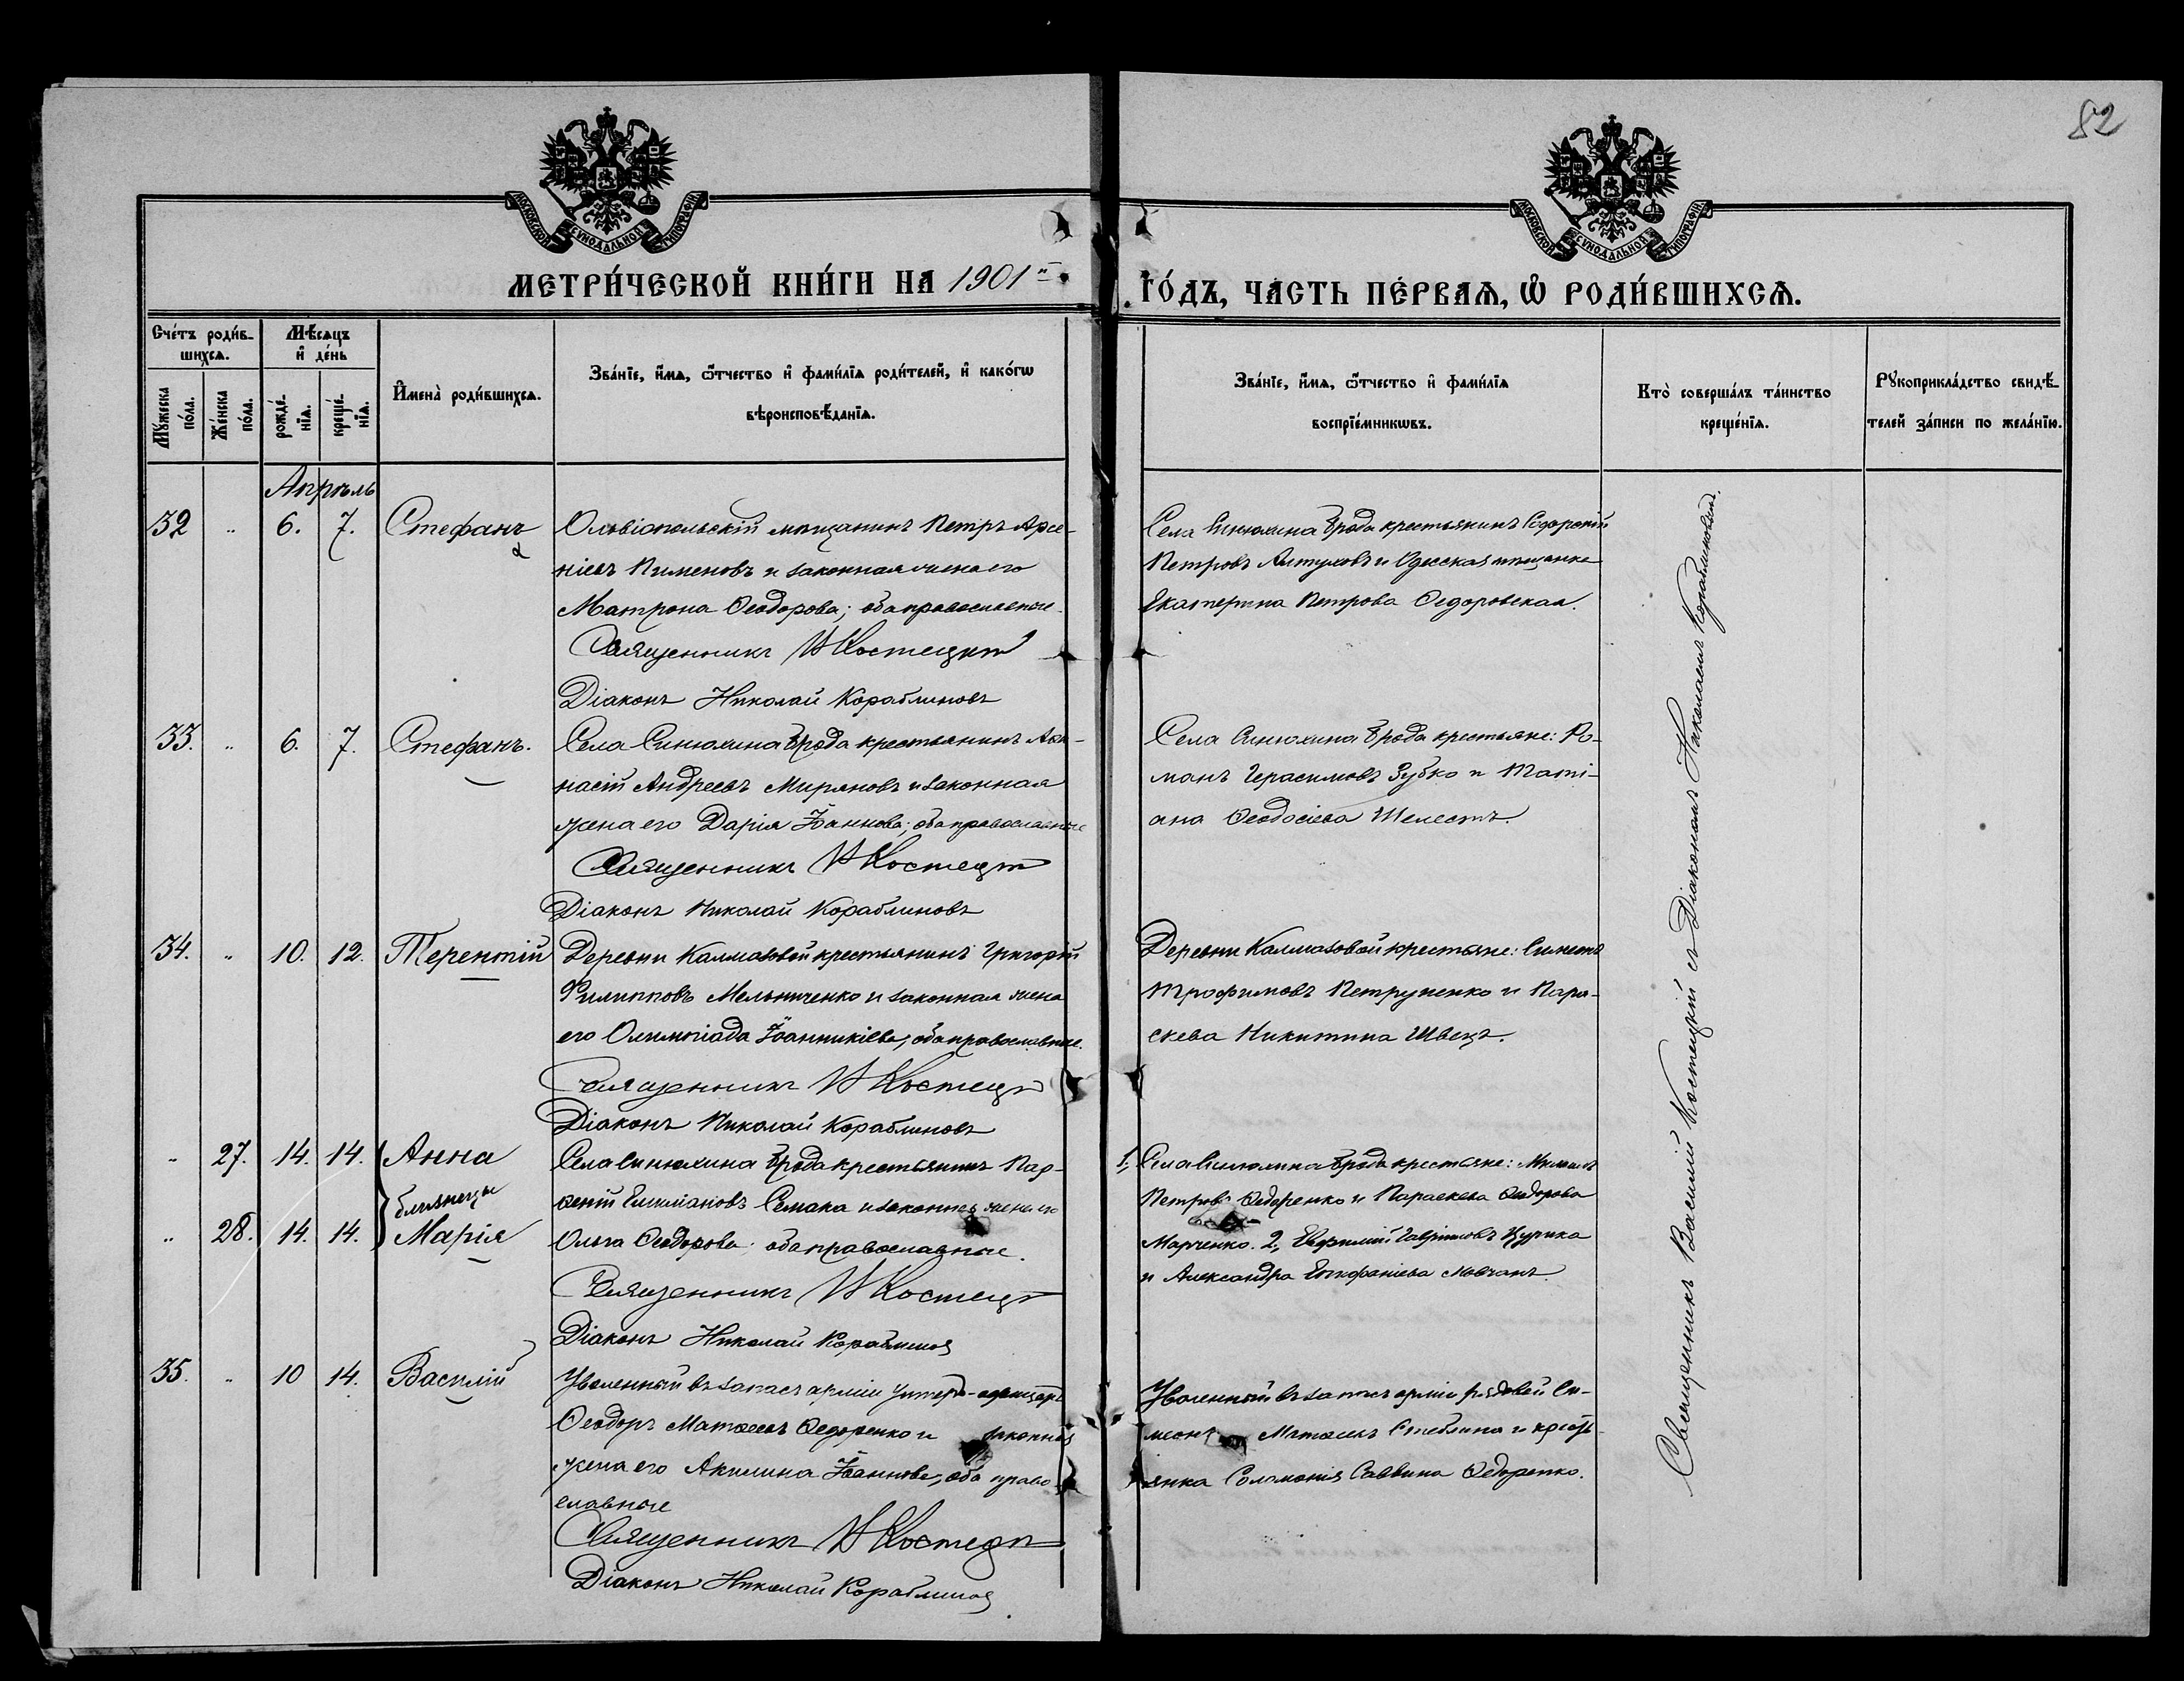 82
МОСКОВСКОЙ СѴНОДАЛЬНОЙ ТИПОГРАФІИ
МОСКОВСКОЙ СѴНОДАЛЬНОЙ ТИПОГРАФІИ
МЕТРИ́ЧЕСКОЙ КНИ́ГИ НА 1901й
ГО́ДЪ, ЧАСТЬ ПЕ́РВАѦ, Ѡ҆ РОДИ́ВШИХСѦ.
Сче́тъ роди́в-
шихсѧ.
Мѣ́сѧцъ
и҆ де́нь
Мꙋ́жеска
по́ла.
Же́нска
по́ла.
рожде́-
нїѧ.
креще́-
нїѧ.
И҆мена̀ роди́вшихсѧ.
Зва́нїе, и҆́мѧ, ѻ҆́тчество и҆ фами́лїѧ роди́телей, и҆ како́гѡ
вѣроисповѣ́данїѧ.
Зва́нїе, и҆́мѧ, ѻ҆́тчество и҆ фами́лїѧ
воспрїе́мникѡвъ.
Кто̀ соверша́лъ та́инство
креще́нїѧ.
Рꙋкоприкла́дство свидѣ́-
телей за́писи по жела́нїю.
Апрѣль
32 " 6. 7. Стефанъ
Ольвіопольскій мѣщанинъ Петръ Арсе-
ніевъ Пименовъ и законная жена его
Матрона Ѳеодорова; оба православные.
Священникъ В Костецкій
Діаконъ Николай Кораблиновъ
Села Синюхина Брода крестьянинъ
Петровъ Алтуховъ и Одесская мѣщанка
Екатерина Петрова Ѳедоровская.
33. " 6. 7. Стефанъ.
Села Синюхина Брода крестьянинъ Аѳа-
насій Андреевъ Миряновъ и законная
жена его Дарія Іоаннова; оба православные
Священникъ В Костецкій
Діаконъ Николай Кораблиновъ
Села Синюхина Брода крестьяне: Ро-
манъ Герасимовъ Зубко и Таті-
ана Ѳеодосіева Шелестъ.
34. " 10. 12. Терентій
Деревни Калмазовой крестьянинъ Григорій
Филипповъ Мельниченко и законная жена
его Олимпіада Іоанникіева; оба православные.
Священникъ В Костецкій
Діаконъ Николай Кораблиновъ
Деревни Калмазовой крестьяне: Симеонъ
Трофимовъ Петруненко и Пара-
скева Никитина Швецъ.
" 27. 14. 14. Анна
близнецы
" 28. 14. 14. Марія
Села Синюхина Брода крестьянинъ Пар-
ѳеній Емиліановъ Семака и законная жена его
Ольга Ѳеодорова; оба православные.
Священникъ В Костецкій
Діаконъ Николай Кораблиновъ
1, Села Синюхина Брода крестьяне: Михаилъ
Петровъ Ѳедоренко и Параскева Ѳеодорова
Марченко. 2, Евфимій Гавриловъ Цурика
и Александра Епифаніева Мовчанъ.
35. " 10 14. Василій
Уволенный въ запасъ арміи унтеръ-офицеръ
Ѳеодоръ Матѳеевъ Ѳедоренко и законная
жена его Акилина Іоаннова, оба право-
славные
Священникъ В Костецкій
Діаконъ Николай Кораблиновъ
Уволенный въ запасъ арміи рядовой Си-
меонъ Матѳеевъ Стеблина и кресть-
янка Соломонія Саввина Ѳедоренко.
Священникъ Василій Костецкій съ Діакономъ Николаемъ Кораблиновымъ.